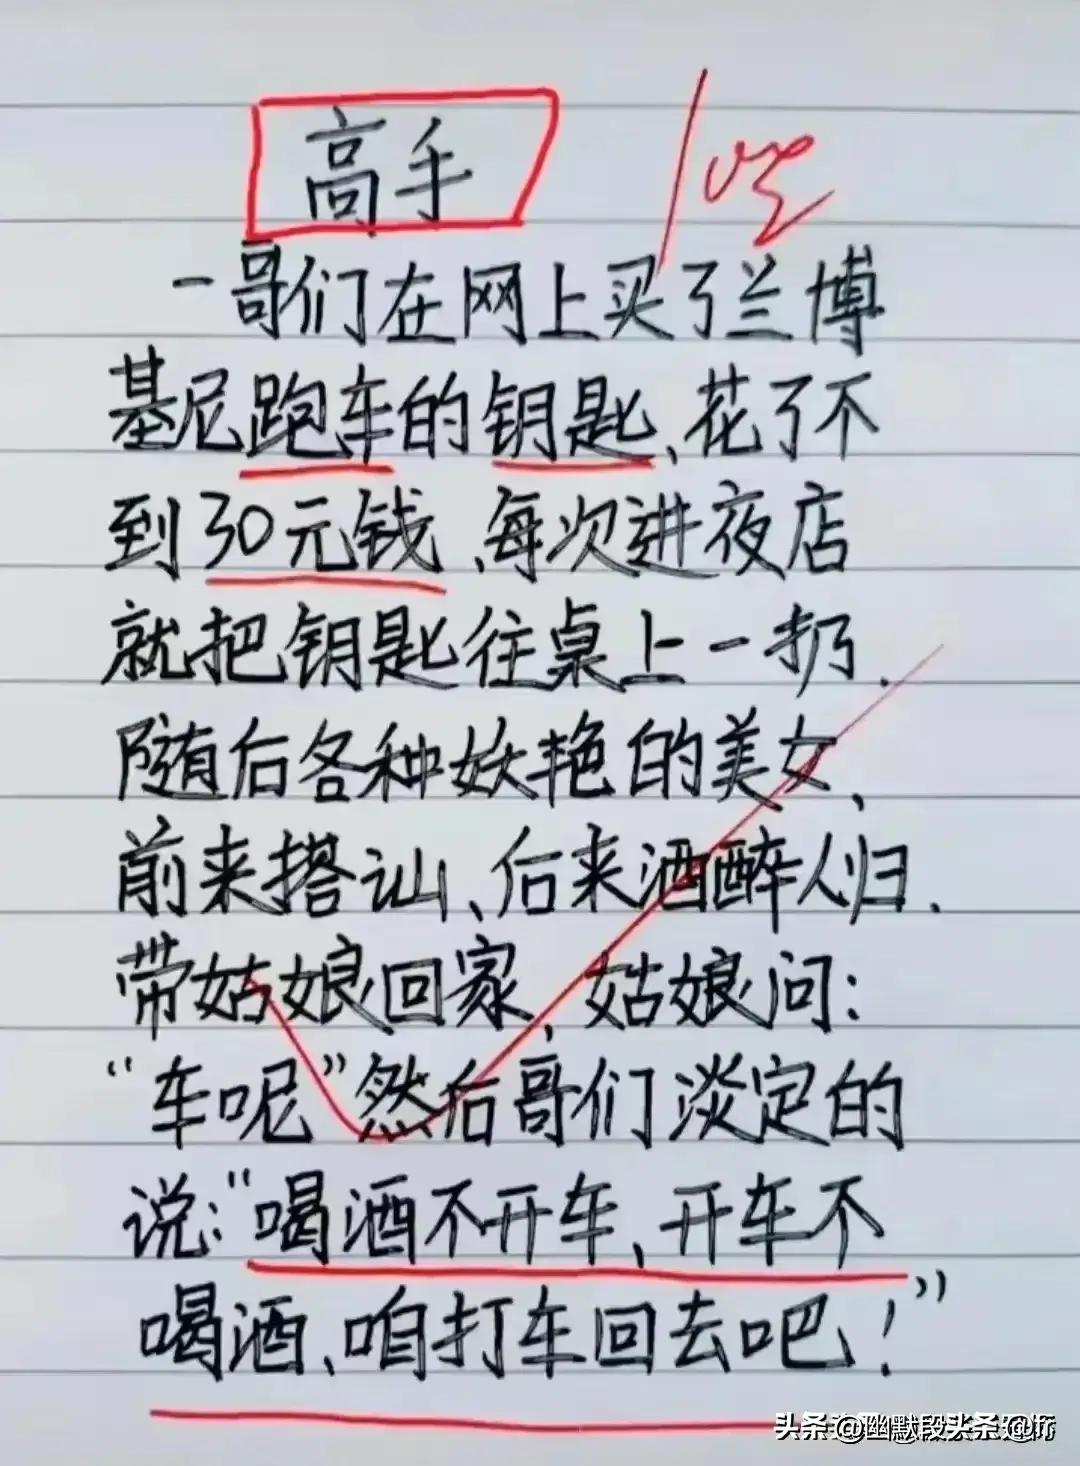 高手
一哥们在网上买了兰博
基尼跑车的钥匙、花了不
到30元钱、每次进夜店
就把钥匙往桌上一扔.
随后各种妖艳的美女、
前来搭讪、后来酒醉人归.
带姑娘回家、姑娘问:
“车呢”然后哥们淡定的
说:“喝酒不开车、开车不
喝酒、咱打车回去吧!”